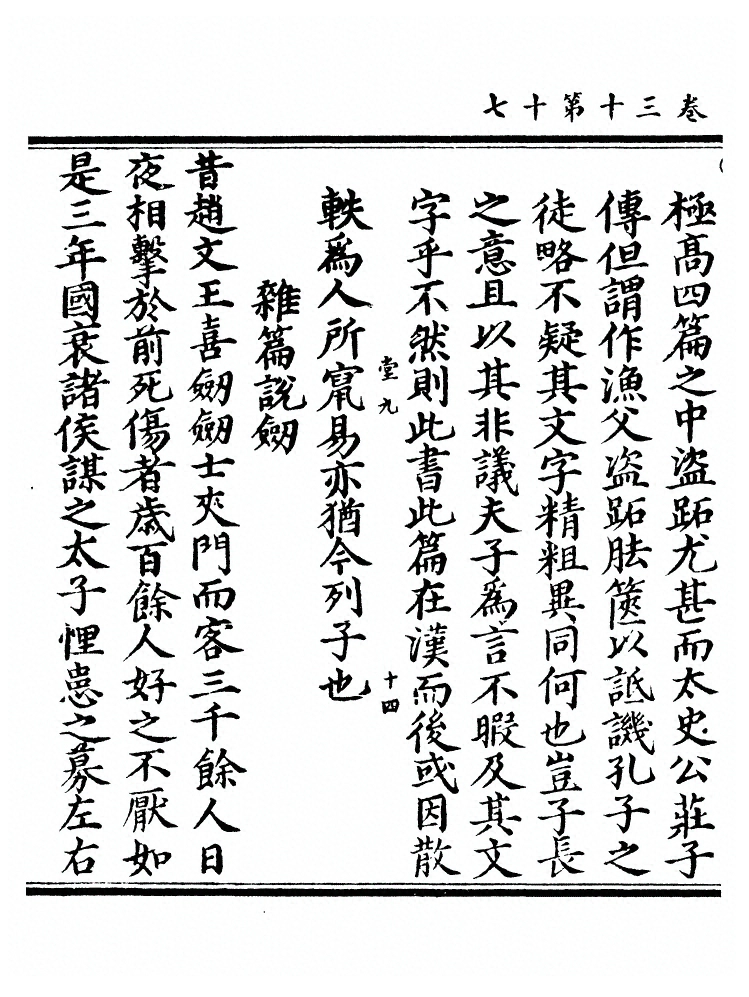 卷三十第十七
極高四篇之中盜跖尤甚而太史公莊子
傳但謂作漁父盗跖胠篋以詆譏孔子之
徒略不疑其文字精粗異同何也豈子長
之意且以其非議夫子爲言不暇及其文
字乎不然則此書此篇在漢而後或因散
堂九
十四
軼爲人所竄易亦猶今列子也
雜篇說劒
昔趙文王喜劒劒士夾門而客三千餘人日
夜相擊於前死傷者歲百餘人好之不厭如
是三年國衰諸侯謀之太子悝患之募左右